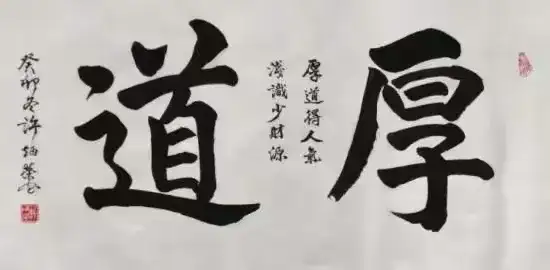 厚
厚道得人氣
淺識少財源
道
癸卯冬許紹榮書